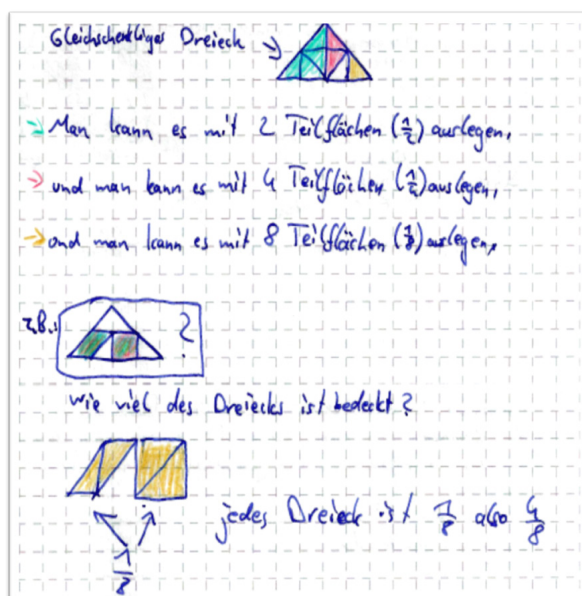 Gleichschenkliges Dreieck →
→ Man kann es mit 2 Teilflächen (1/2) auslegen,
→ und man kann es mit 4 Teilflächen (1/4) auslegen,
→ und man kann es mit 8 Teilflächen (1/8) auslegen,
z.B.: ?
wie viel des Dreiecks ist bedeckt?
jedes Dreieck ist 1/8 also 4/8
1/8